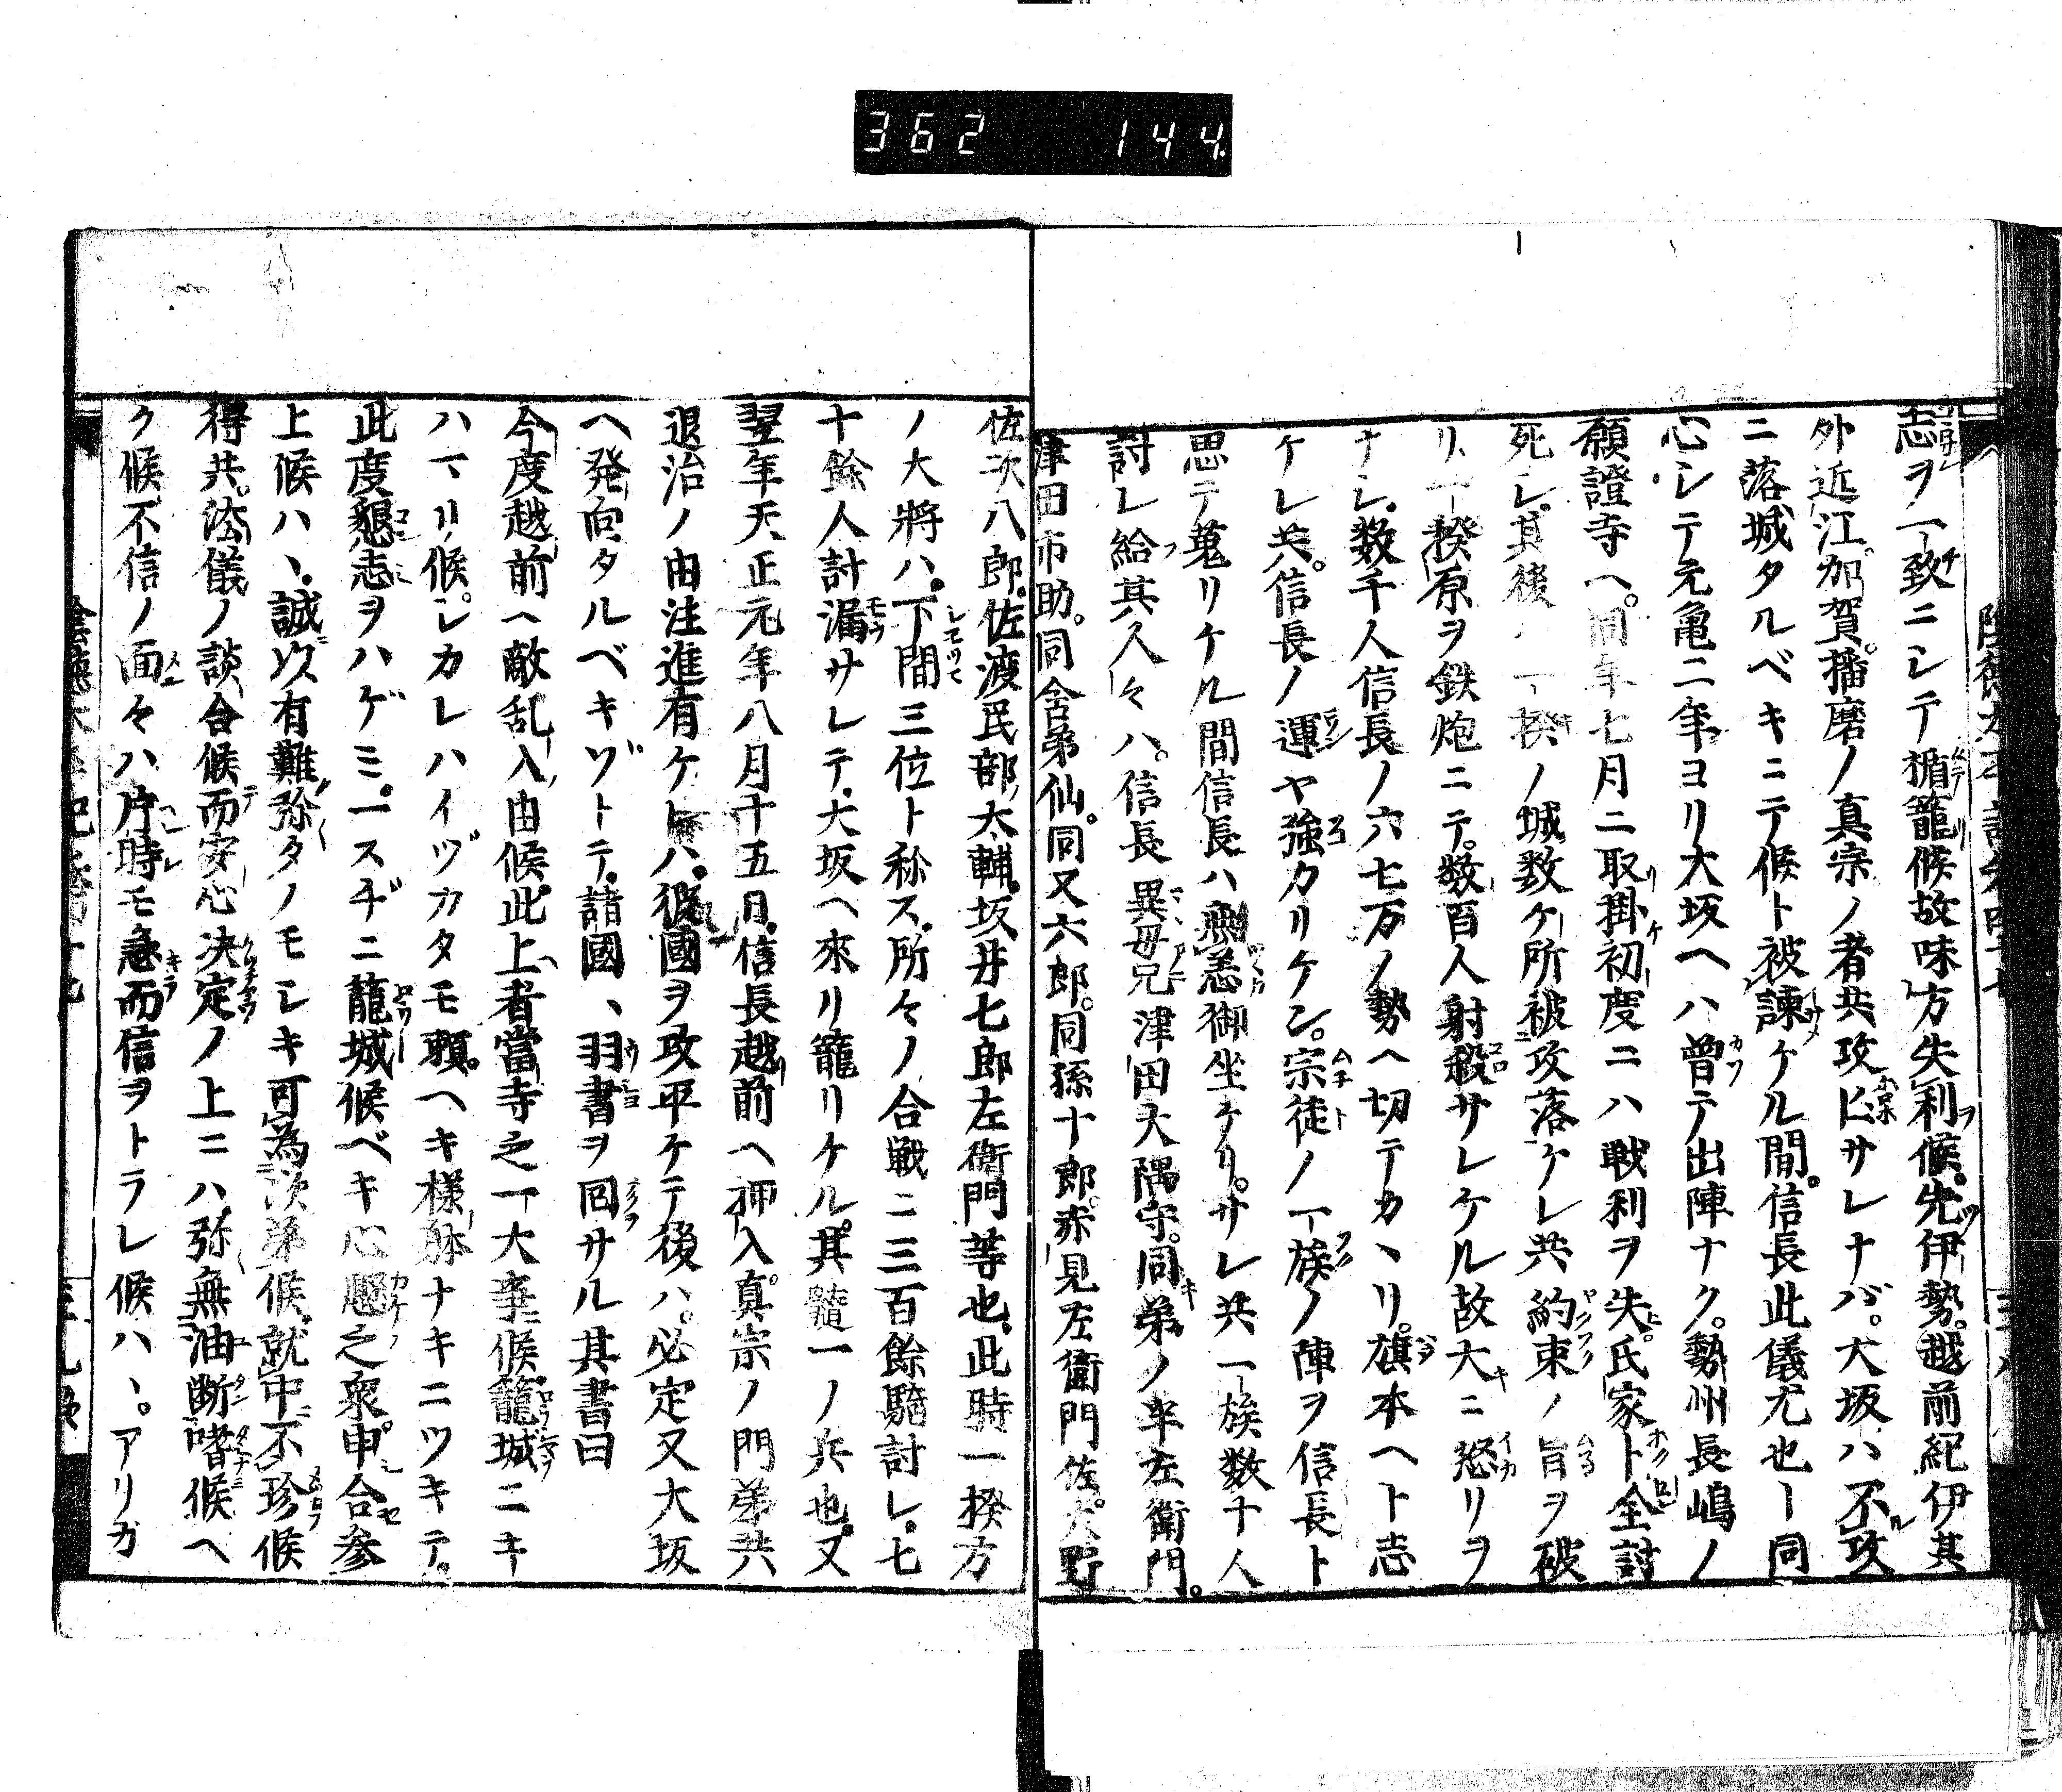 362 144
志ヲ一致ニシテ楯籠候故味方失利候。先伊勢。越前紀伊其
外近江。加賀。播磨ノ真宗ノ者共攻亡サレナバ。大坂ハ不攻
ニ落城タルベキニテ候ト被諫ケル間。信長此儀尤也ト同
心シテ元亀二年ヨリ大坂ヘハ曽テ出陣ナク。勢州長嶋ノ
願證寺ヘ。同年七月ニ取掛初度ニハ戦利ヲ失。氏家卜全討
死シ。其後ノ一揆ノ城数ケ所被攻落ケレ共約束ノ旨ヲ破
リ、一揆原ヲ鉄炮ニテ。数百人射殺サレケル故大ニ怒リヲ
ナシ。数千人信長ノ六七万ノ勢ヘ切テカヽリ。旗本ヘト志
ケレ共。信長ノ運ヤ強カリケン。宗徒ノ一族ノ陣ヲ信長ト
思テ蒐リケル間信長ハ無恙御坐ケリ。サレ共一族数十人
討レ給其人々ハ。信長異母兄津田大隅守。同弟ノ半左衛門。
津田市助。同舎弟仙。同又六郎。同孫十郎。赤見左衛門佐。大野
佐次八郎。佐渡民部大輔。坂井七郎左衛門等也。此時一揆方
ノ大將ハ。下間三位ト称ス。所々ノ合戦ニ三百餘騎討レ。七
十餘人計漏サレテ。大坂ヘ來リ籠リケル。其髄一ノ兵也。又
翌年天正元年八月十五日。信長越前ヘ押入真宗ノ門弟共
退治ノ由注進有ケレハ。彼國ヲ攻平ケテ後ハ。必定又大坂
ヘ発向タルベキゾトテ。諸國ヽ羽書ヲ回サル其書曰
今度越前ヘ敵乱入由候。此上者當寺之一大事候。籠城ニキ
ハマリ候。シカレハイヅカタモ頼ヘキ様躰ナキニツキテ。
此度懇志ヲハゲミ。一スヂニ籠城候ベキ心懸之衆申合参
上候ハヽ。誠以有難弥タノモシキ可為次第候。就中不珍候
得共。法儀ノ談合候而安心決定ノ上ニハ。弥無油断嗜候ヘ
ク候。不信ノ面々ハ片時モ急而信ヲトラレ候ハヽ。アリガ